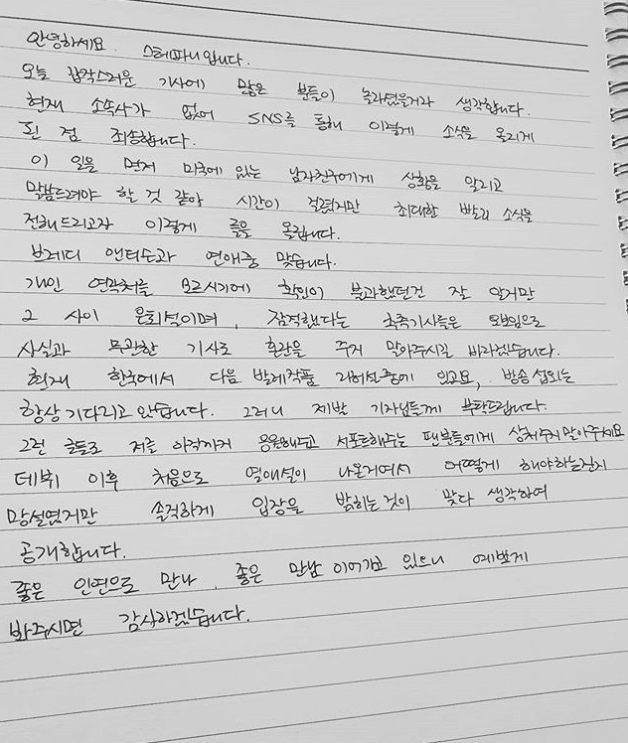 안녕하세요. 스테파니입니다.
오늘 갑작스러운 기사에 많은 분들이 놀라셨을거라 생각합니다.
현재 소속사가 없어 SNS를 통해 이렇게 소식을 올리게
된 점 죄송합니다.
이 일은 먼저 미국에 있는 남자친구에게 상황을 알리고
말씀드려야 할 것 같아 시간이 걸렸지만 최대한 빨리 소식을
전해드리고자 이렇게 글을 올립니다.
브래디 앤더슨과 연애중 맞습니다.
개인 연락처를 모르시기에 확인이 불과했던건 잘 알지만
그 사이 은퇴설이며, 잠적했다는 추측기사들은 오보임으로
사실과 무관한 기사로 혼란을 주지 말아주시길 바라겠습니다.
현재 한국에서 다음 발레작품 리허설중에 있고요, 방송 섭외는
항상 기다리고 있습니다. 그러니 제발 기자님들께 부탁드립니다.
그런 글들로 저를 아직까지 응원해주고 서포트해주는 팬분들에게 상처주지 말아주세요
데뷔 이후 처음으로 열애설이 나온거여서 어떻게 해야하는건지
망설였지만 솔직하게 입장을 밝히는것이 맞다 생각하여
공개합니다.
좋은 인연으로 만나, 좋은 만남 이어가고 있으니 예쁘게
봐주시면 감사하겠습니다.